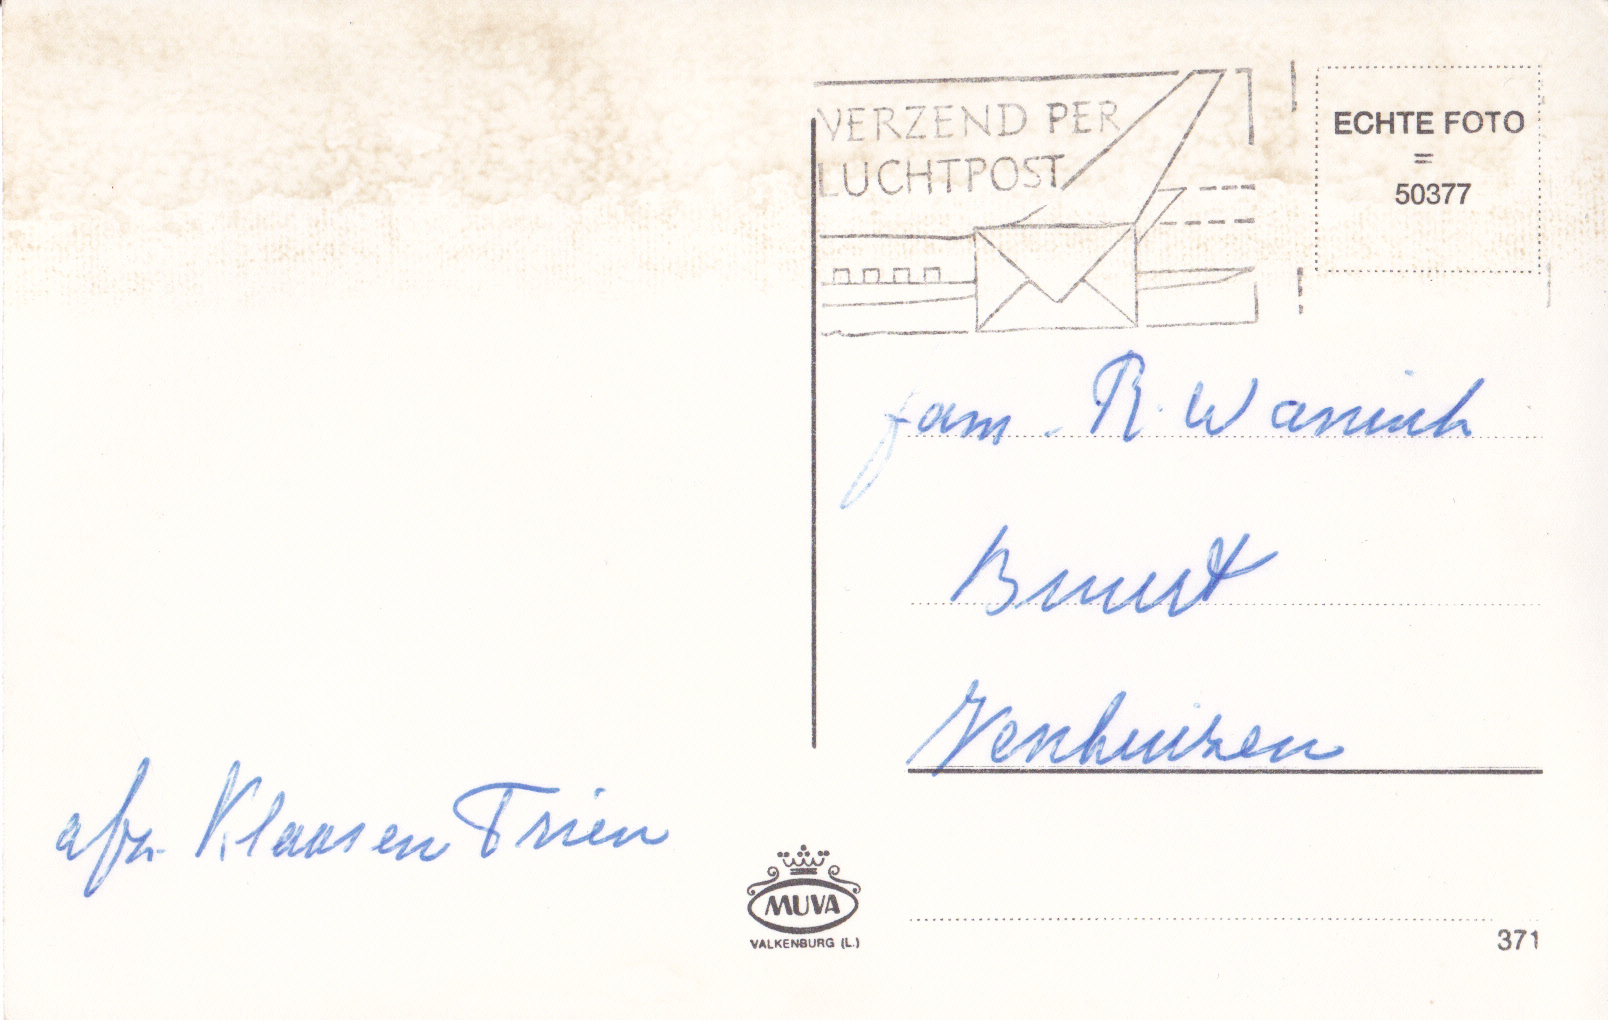 VERZEND PER
LUCHTPOST
ECHTE FOTO
=
50377
fam. R. Wannink
Buurt
Venhuizen
afz. Klaas en Trien
MUVA
VALKENBURG (L.)
371